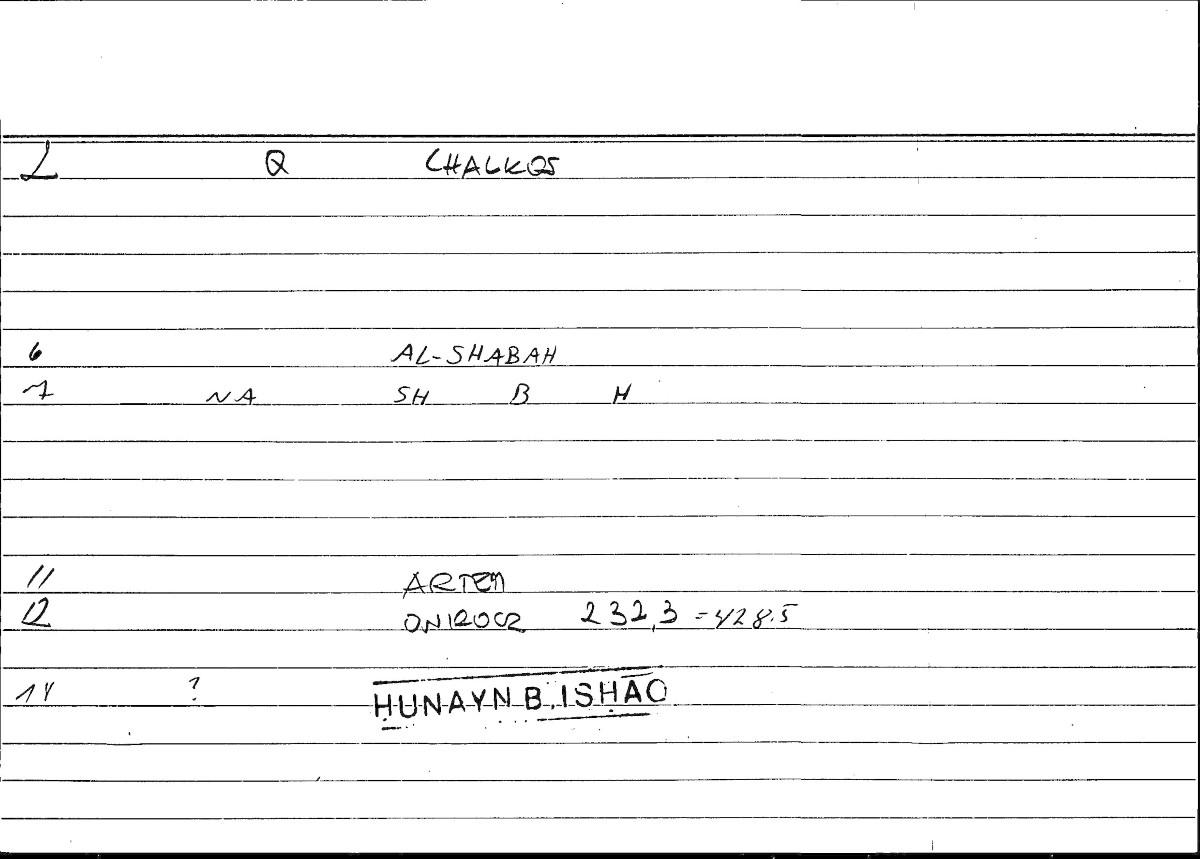 2 Q CHALKOS
6 AL-SHABAH
7 NA SH B H
11 ARTEM
12 ONIROCR 232,3 = 428.5
14 ? ḤUNAYN B. ISḤĀQ